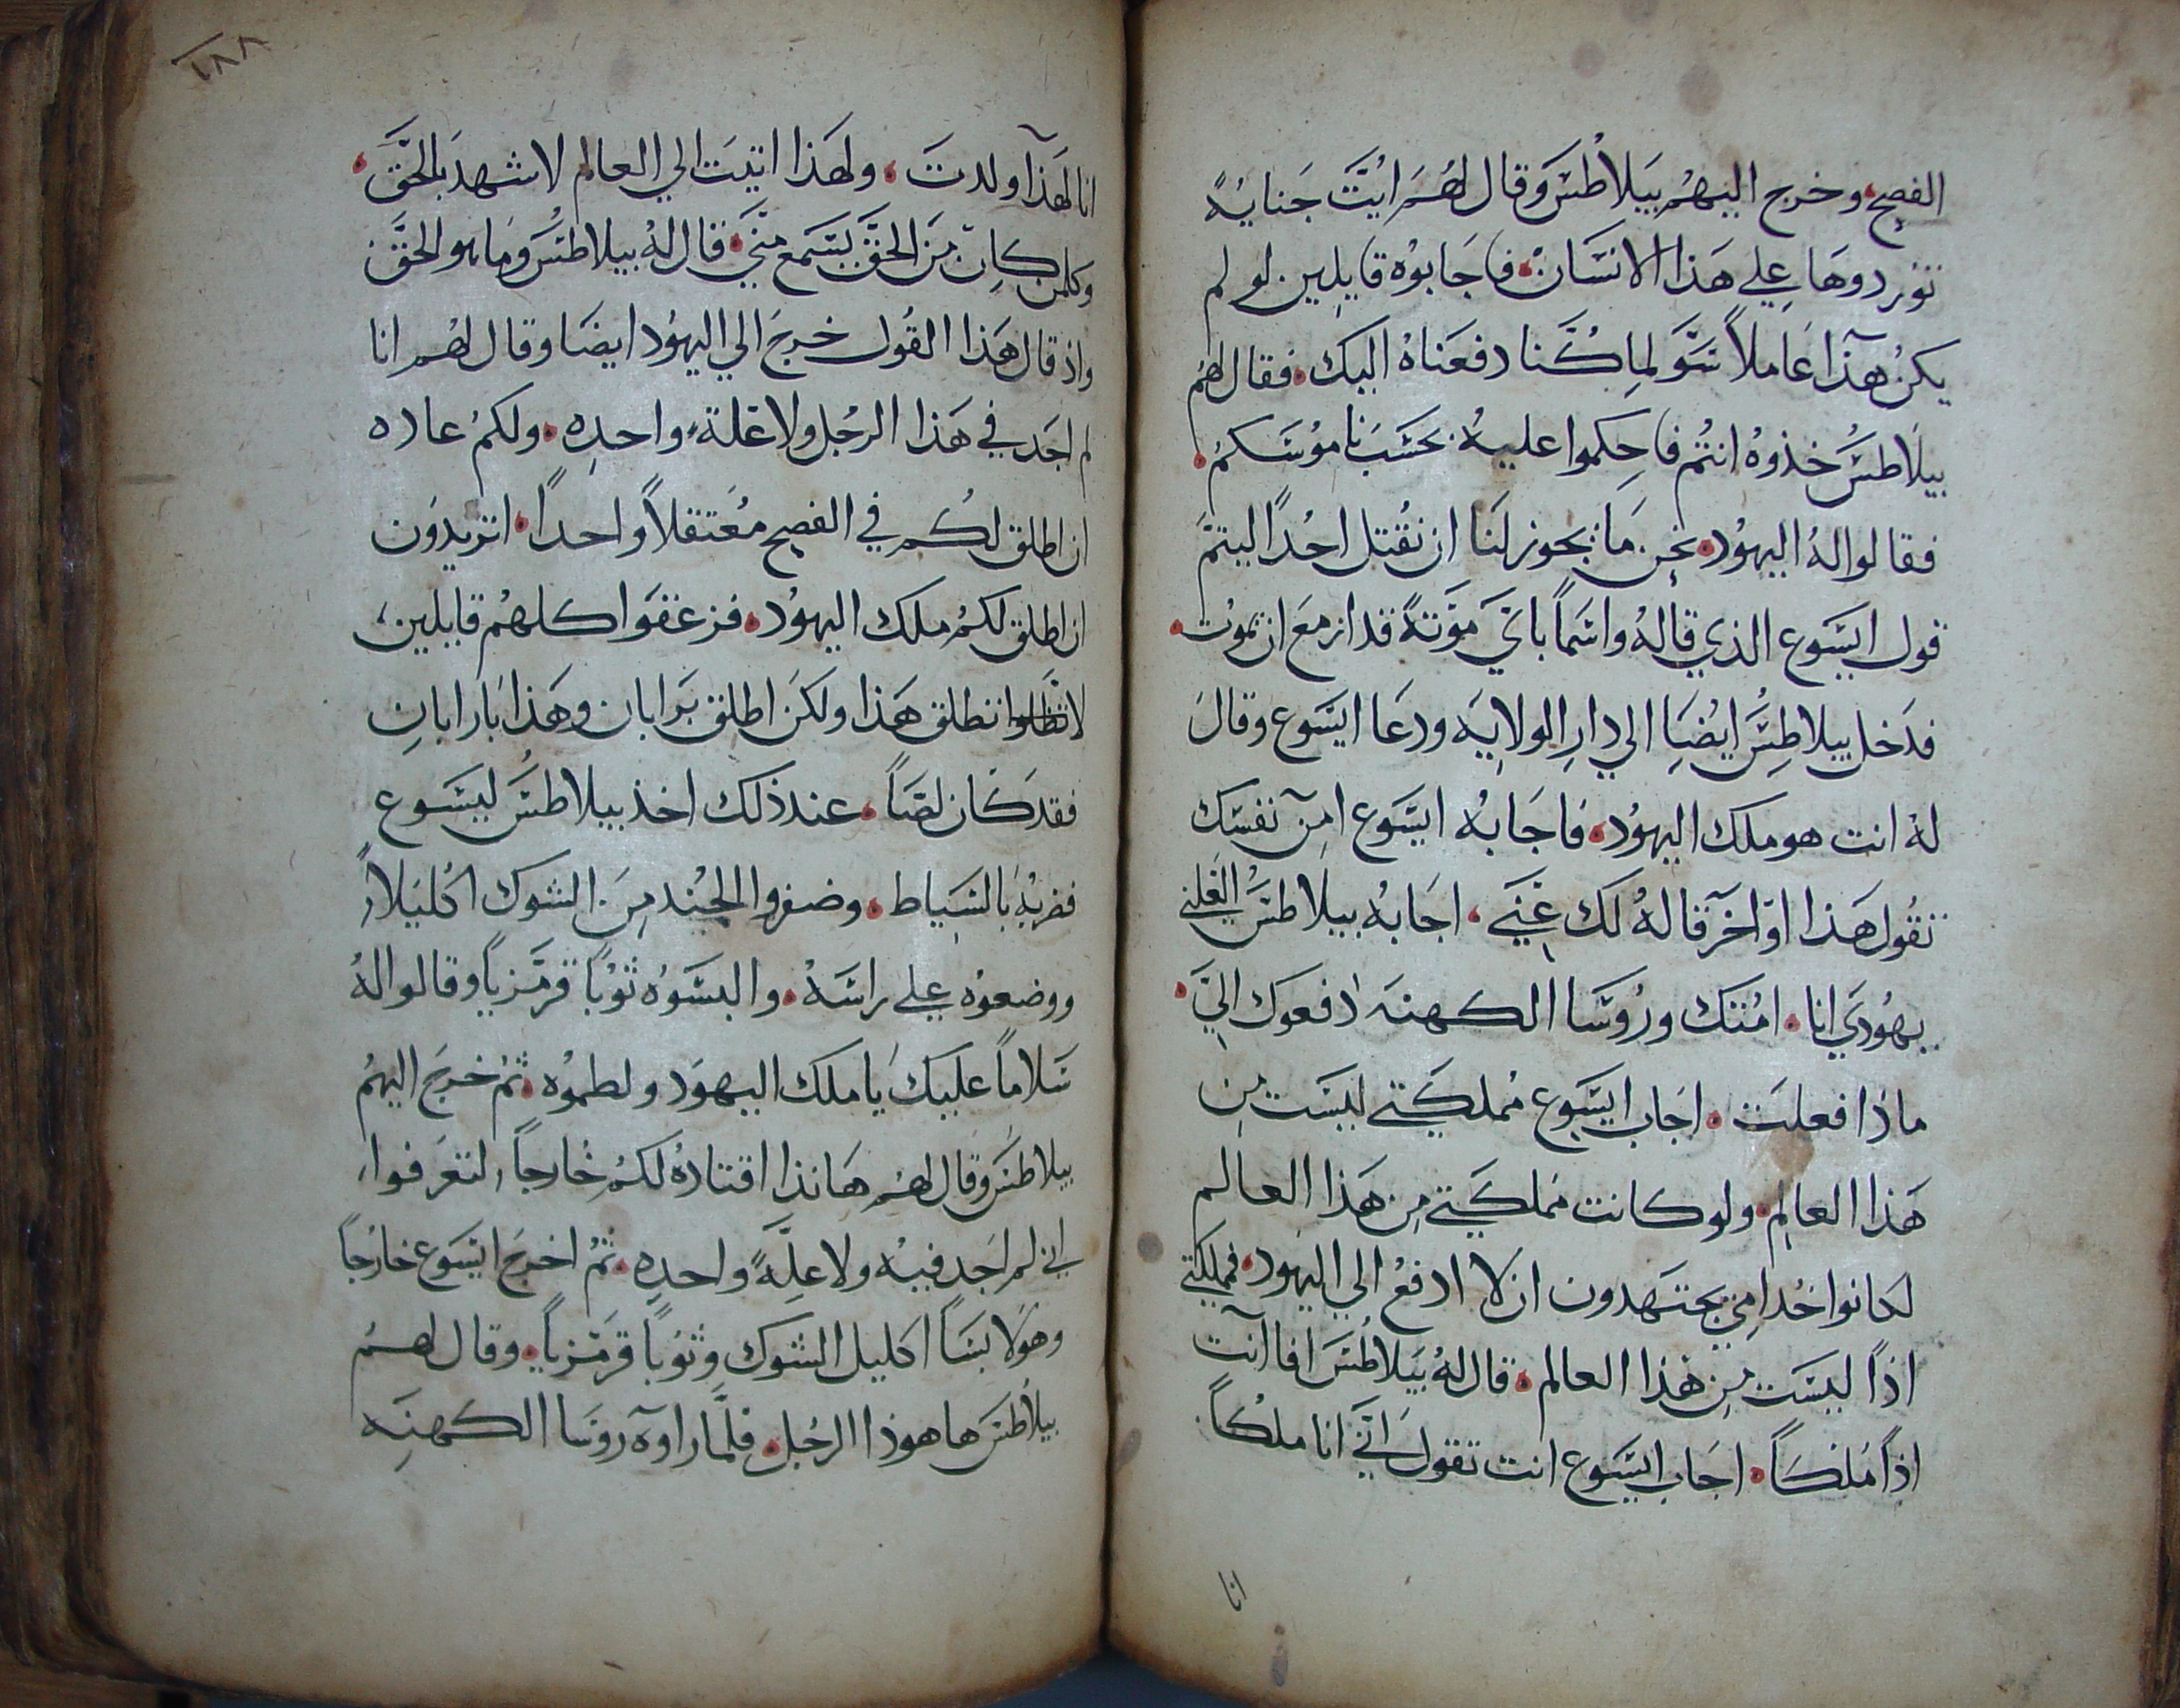 الفصح، وخرج اليهم بيلاطس وقال لهم ايت جناية
توردوها علي هذا الانسان، فاجابوه قايلين لو لم
يكن هذا عاملا سو لما كنا دفعناه اليك، فقال لهم
بيلاطس خذوه انتم فاحكموا عليه بحسب ناموسكم،
فقالوا له اليهود، نحن ما يجوز لنا ان نقتل احدا ليتم
قول ايسوع الذي قاله واسما باي موتة قد ازمع ان يموت،
فدخل بيلاطس ايضا الي دار الولايه ودعا ايسوع وقال
له انت هو ملك اليهود، فاجابه ايسوع امن نفسك
تقول هذا او اخر قاله لك عني، اجابه بيلاطس العلني
يهودي انا، امتك وروسا الكهنه ادفعوك الي،
ماذا فعلت، اجاب ايسوع مملكتي ليست من
هذا العالم، ولو كانت مملكتي من هذا العالم
لكانوا خدامي يجتهدون ان لا ادفع الي اليهود، فمملكتي
اذا ليست من هذا العالم، قال له بيلاطس افا انت
اذا ملكا، اجاب ايسوع انت تقول اني انا ملكا
انا
١٨٨
انا لهذا ولدت، ولهذا اتيت الي العالم لاشهد بالحق،
وكلمن كان من الحق يسمع مني، قال له بيلاطس وما هو الحق
واذ قال هذا القول خرج الي اليهود ايضا وقال لهم انا
لم اجد في هذا الرجل ولا علة واحده، ولكم عاده
ان اطلق لكم في الفصح معتقلا واحدا، اتريدون
ان اطلق لكم ملك اليهود، فزعقوا كلهم قايلين
لا تطلق هذا ولكن اطلق برابان وهذا بارابان
فقد كان لصا، عند ذلك اخذ بيلاطس ليسوع
فضربه بالسياط، وضفروا الجند من الشوك اكليلا
ووضعوه علي راسه، والبسوه ثوبا قرمزيا وقالوا له
سلاما عليك يا ملك اليهود ولطموه، ثم خرج اليهم
بيلاطس وقال لهم هانذا اقتاده لكم خارجا لتعرفوا
اني لم اجد فيه ولا علة واحده، ثم اخرج ايسوع خارجا
وهو لابسا اكليل الشوك وثوبا قرمزيا، وقال لهم
بيلاطس ها هوذا الرجل، فلما راوه روسا الكهنه